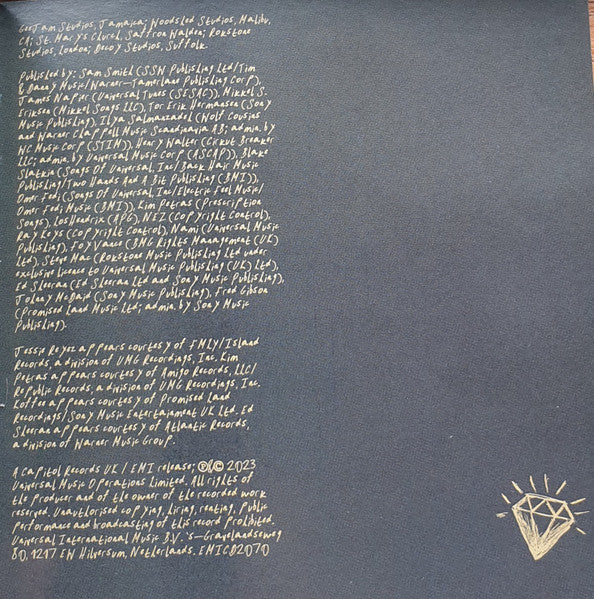 GeeJam Studios, Jamaica; Woodshed Studios, Malibu,
CA; St. Mary's Church, Saffron Walden; Rokstone
Studios, London; Decoy Studios, Suffolk.
Published by: Sam Smith (SSN Publishing Ltd/Tim
& Danny Music/Warner-Tamerlane Publishing Corp),
James Napier (Universal Tunes (SESAC)), Mikkel S.
Eriksen (Mikkel Songs LLC), Tor Erik Hermansen (Sony
Music Publishing), Ilya Salmanzadeh (Wolf Cousins
and Warner Chappell Music Scandinavia AB; admin. by
WC Music Corp (STIM)), Henry Walter (Cirkut Breaker
LLC; admin. by Universal Music Corp (ASCAP)), Blake
Slatkin (Songs Of Universal, Inc/Back Hair Music
Publishing/Two Hands And A Bit Publishing (BMI)),
Omer Fedi (Songs Of Universal, Inc/Electric Feel Music/
Omer Fedi Music (BMI)), Kim Petras (Prescription
Songs), LosHendrix (APG), NEZ (Copyright Control),
Ray Keys (Copyright Control), Nami (Universal Music
Publishing), Foy Vance (BMG Rights Management (UK)
Ltd), Steve Mac (Rokstone Music Publishing Ltd under
exclusive licence to Universal Music Publishing (UK) Ltd),
Ed Sheeran (Ed Sheeran Ltd and Sony Music Publishing),
Johnny McDaid (Sony Music Publishing), Fred Gibson
(Promised Land Music Ltd; admin. by Sony Music
Publishing).
Jessie Reyez appears courtesy of FMLY/Island
Records, a division of UMG Recordings, Inc. Kim
Petras appears courtesy of Amigo Records, LLC/
Republic Records, a division of UMG Recordings, Inc.
Koffee appears courtesy of Promised Land
Recordings/Sony Music Entertainment UK Ltd. Ed
Sheeran appears courtesy of Atlantic Records,
a division of Warner Music Group.
A Capitol Records UK / EMI release; ℗&© 2023
Universal Music Operations Limited. All rights of
the producer and of the owner of the recorded work
reserved. Unauthorised copying, hiring, renting, public
performance and broadcasting of this record prohibited.
Universal International Music B.V.'s—Gravelandseweg
80, 1217 EW Hilversum, Netherlands. EMICD2070